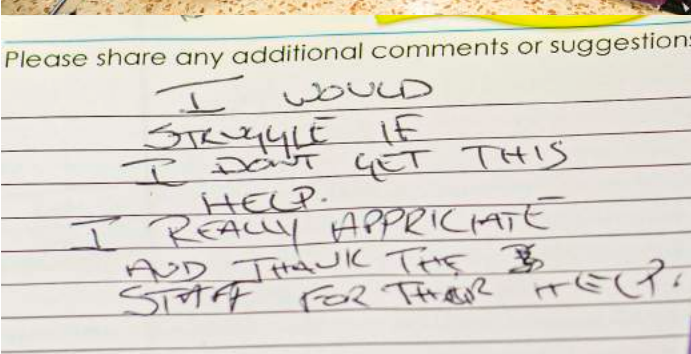 Please share any additional comments or suggestion
I WOULD
STRUGGLE IF
I DONT GET THIS
HELP.
I REALLY APPRICIATE
AND THANK THE
STAFF FOR THEIR HELP.